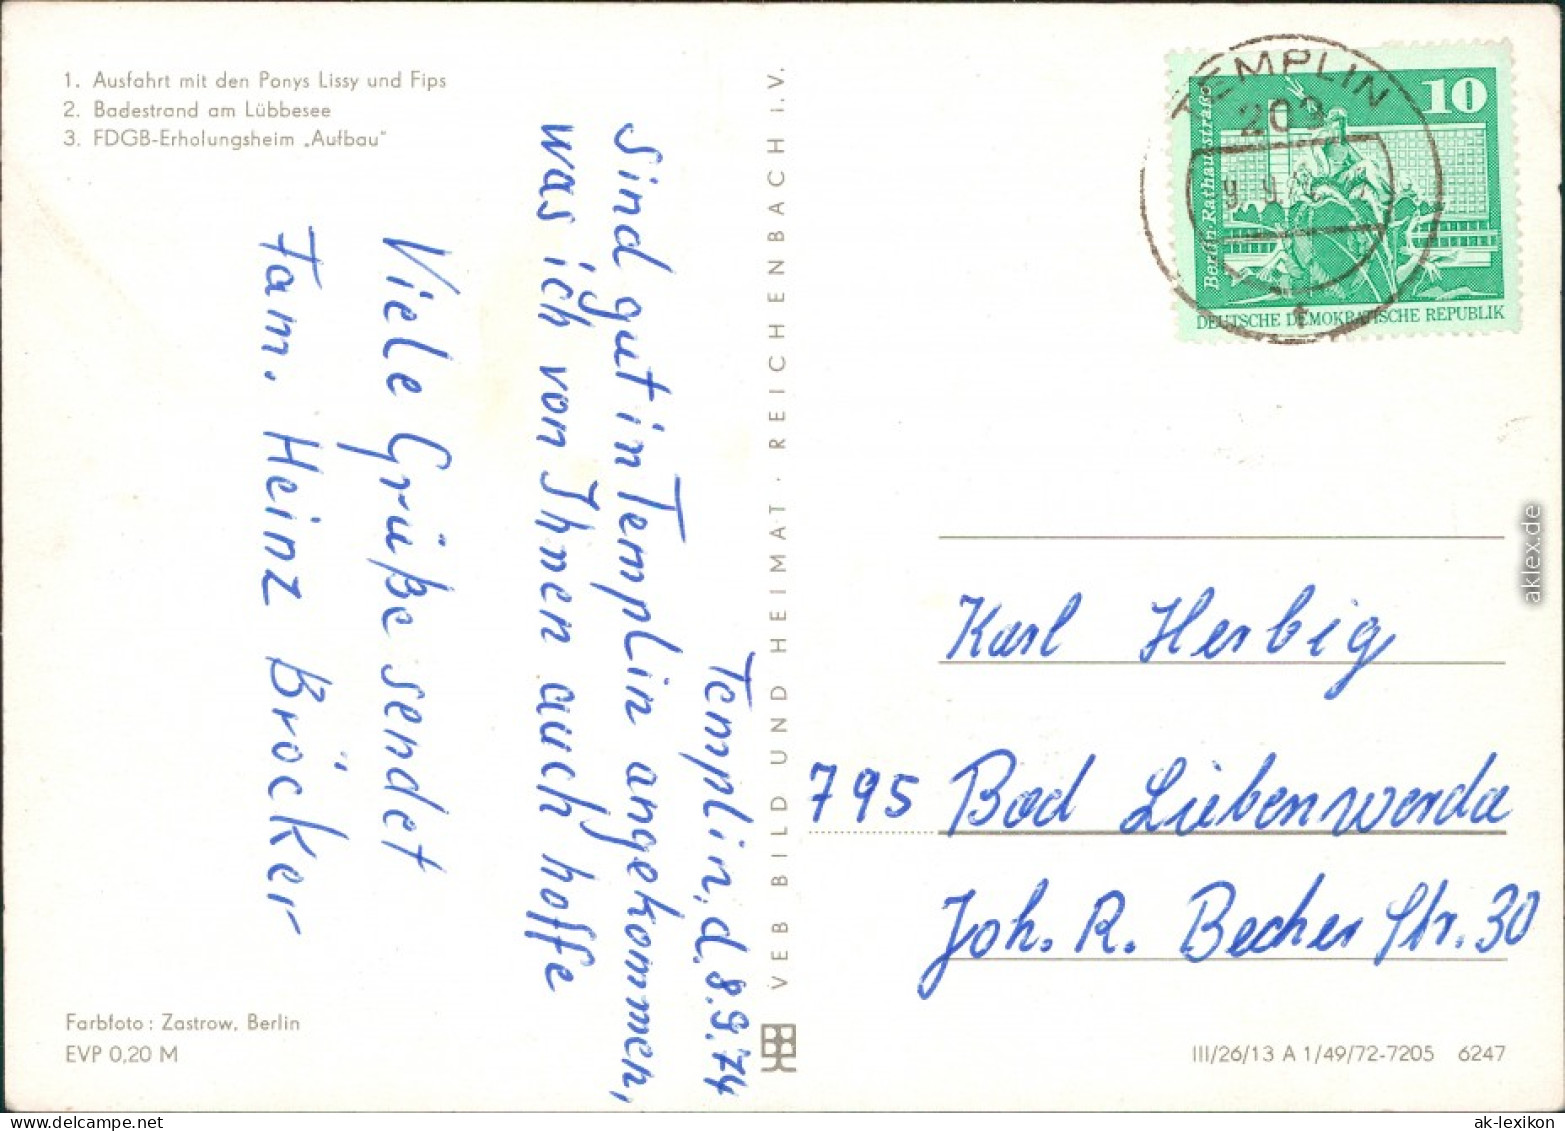 1. Ausfahrt mit den Ponys Lissy und Fips
2. Badestrand am Lübbesee
3. FDGB-Erholungsheim „Aufbau"
Templin, d. 8.9.74
Sind gut in Templin angekommen,
was ich von Ihnen auch hoffe
Viele Grüße sendet
Fam. Heinz Bröcker
Farbfoto: Zastrow, Berlin
EVP 0,20 M
VEB BILD UND HEIMAT · REICHENBACH i. V.
TEMPLIN
10
Berlin, Rathausstraße
DEUTSCHE DEMOKRATISCHE REPUBLIK
Karl Herbig
795 Bad Liebenwerda
Joh. R. Becher Str. 30
III/26/13 A 1/49/72-7205 6247
aklex.de
ak-lexikon